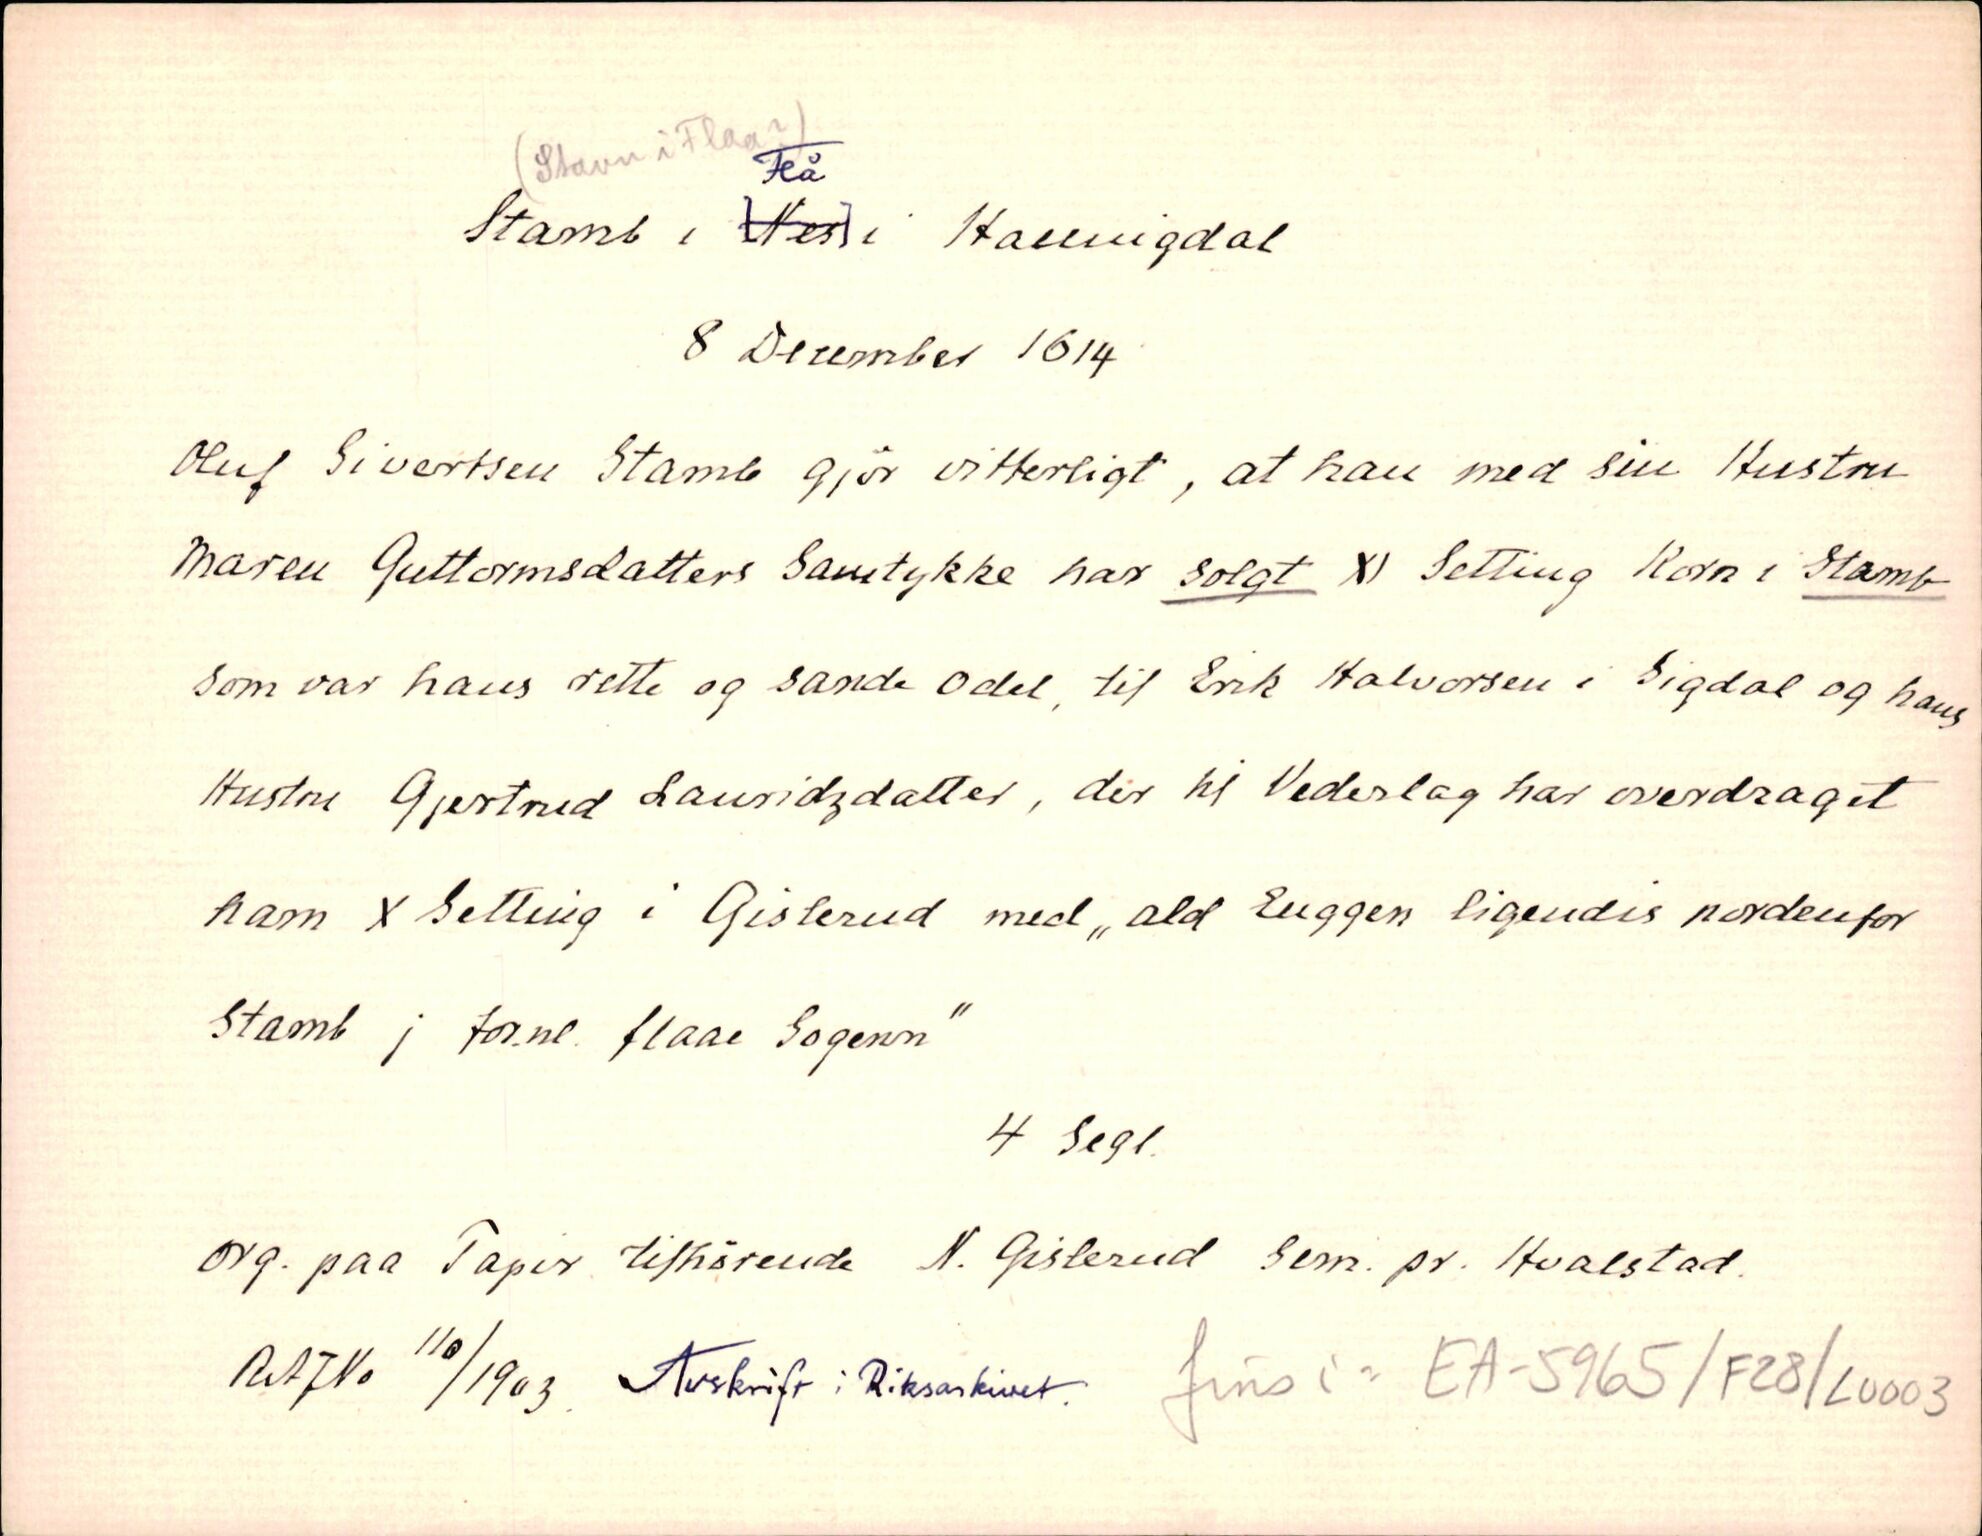 (Stavn i Flaa?)
Flå
Stamb i [Nes] i Hallingdal
8 December 1614
Oluf Sivertsen Stamb gjör vitterligt, at han med sin Hustru
Maren Guttormsdatters Samtykke har solgt XI Setting Korn i Stamb
som var hans rette og sande Odel, til Erik Halvorsen i Sigdal og hans
Hustru Gjertrud Lauridzdatter, der til Vederlag har overdraget
ham X Setting i Gislerud med „ald Euggen ligendis nordenfor
Stamb j for.ne. flaae Sogenn"
4 Segl.
Org. paa Papir tilhörende N. Gislerud Sem. pr. Hvalstad.
RA J No 110/1903. Avskrift i Riksarkivet.
fins i EA-5965/F28/L0003